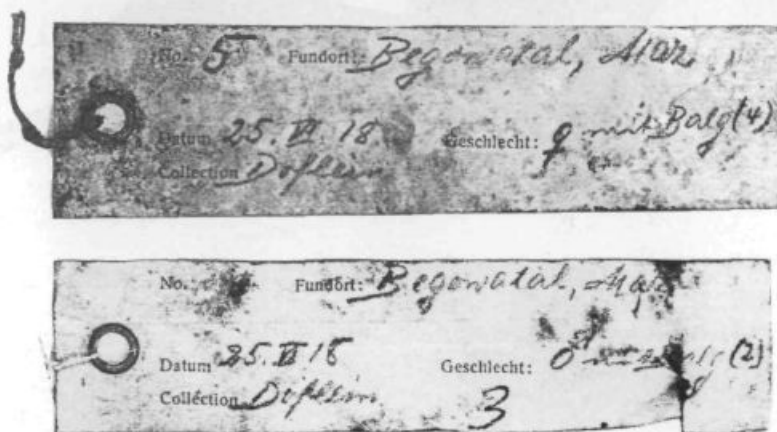 No. 5 Fundort: Begowatal, Maz.
Datum 25. VI. 18 Geschlecht: ♀ mit Balg (4)
Collection Doflein
No. Fundort: Begowatal, Maz.
Datum 25. VI 18 Geschlecht: ♂ (2)
Collection Doflein 3